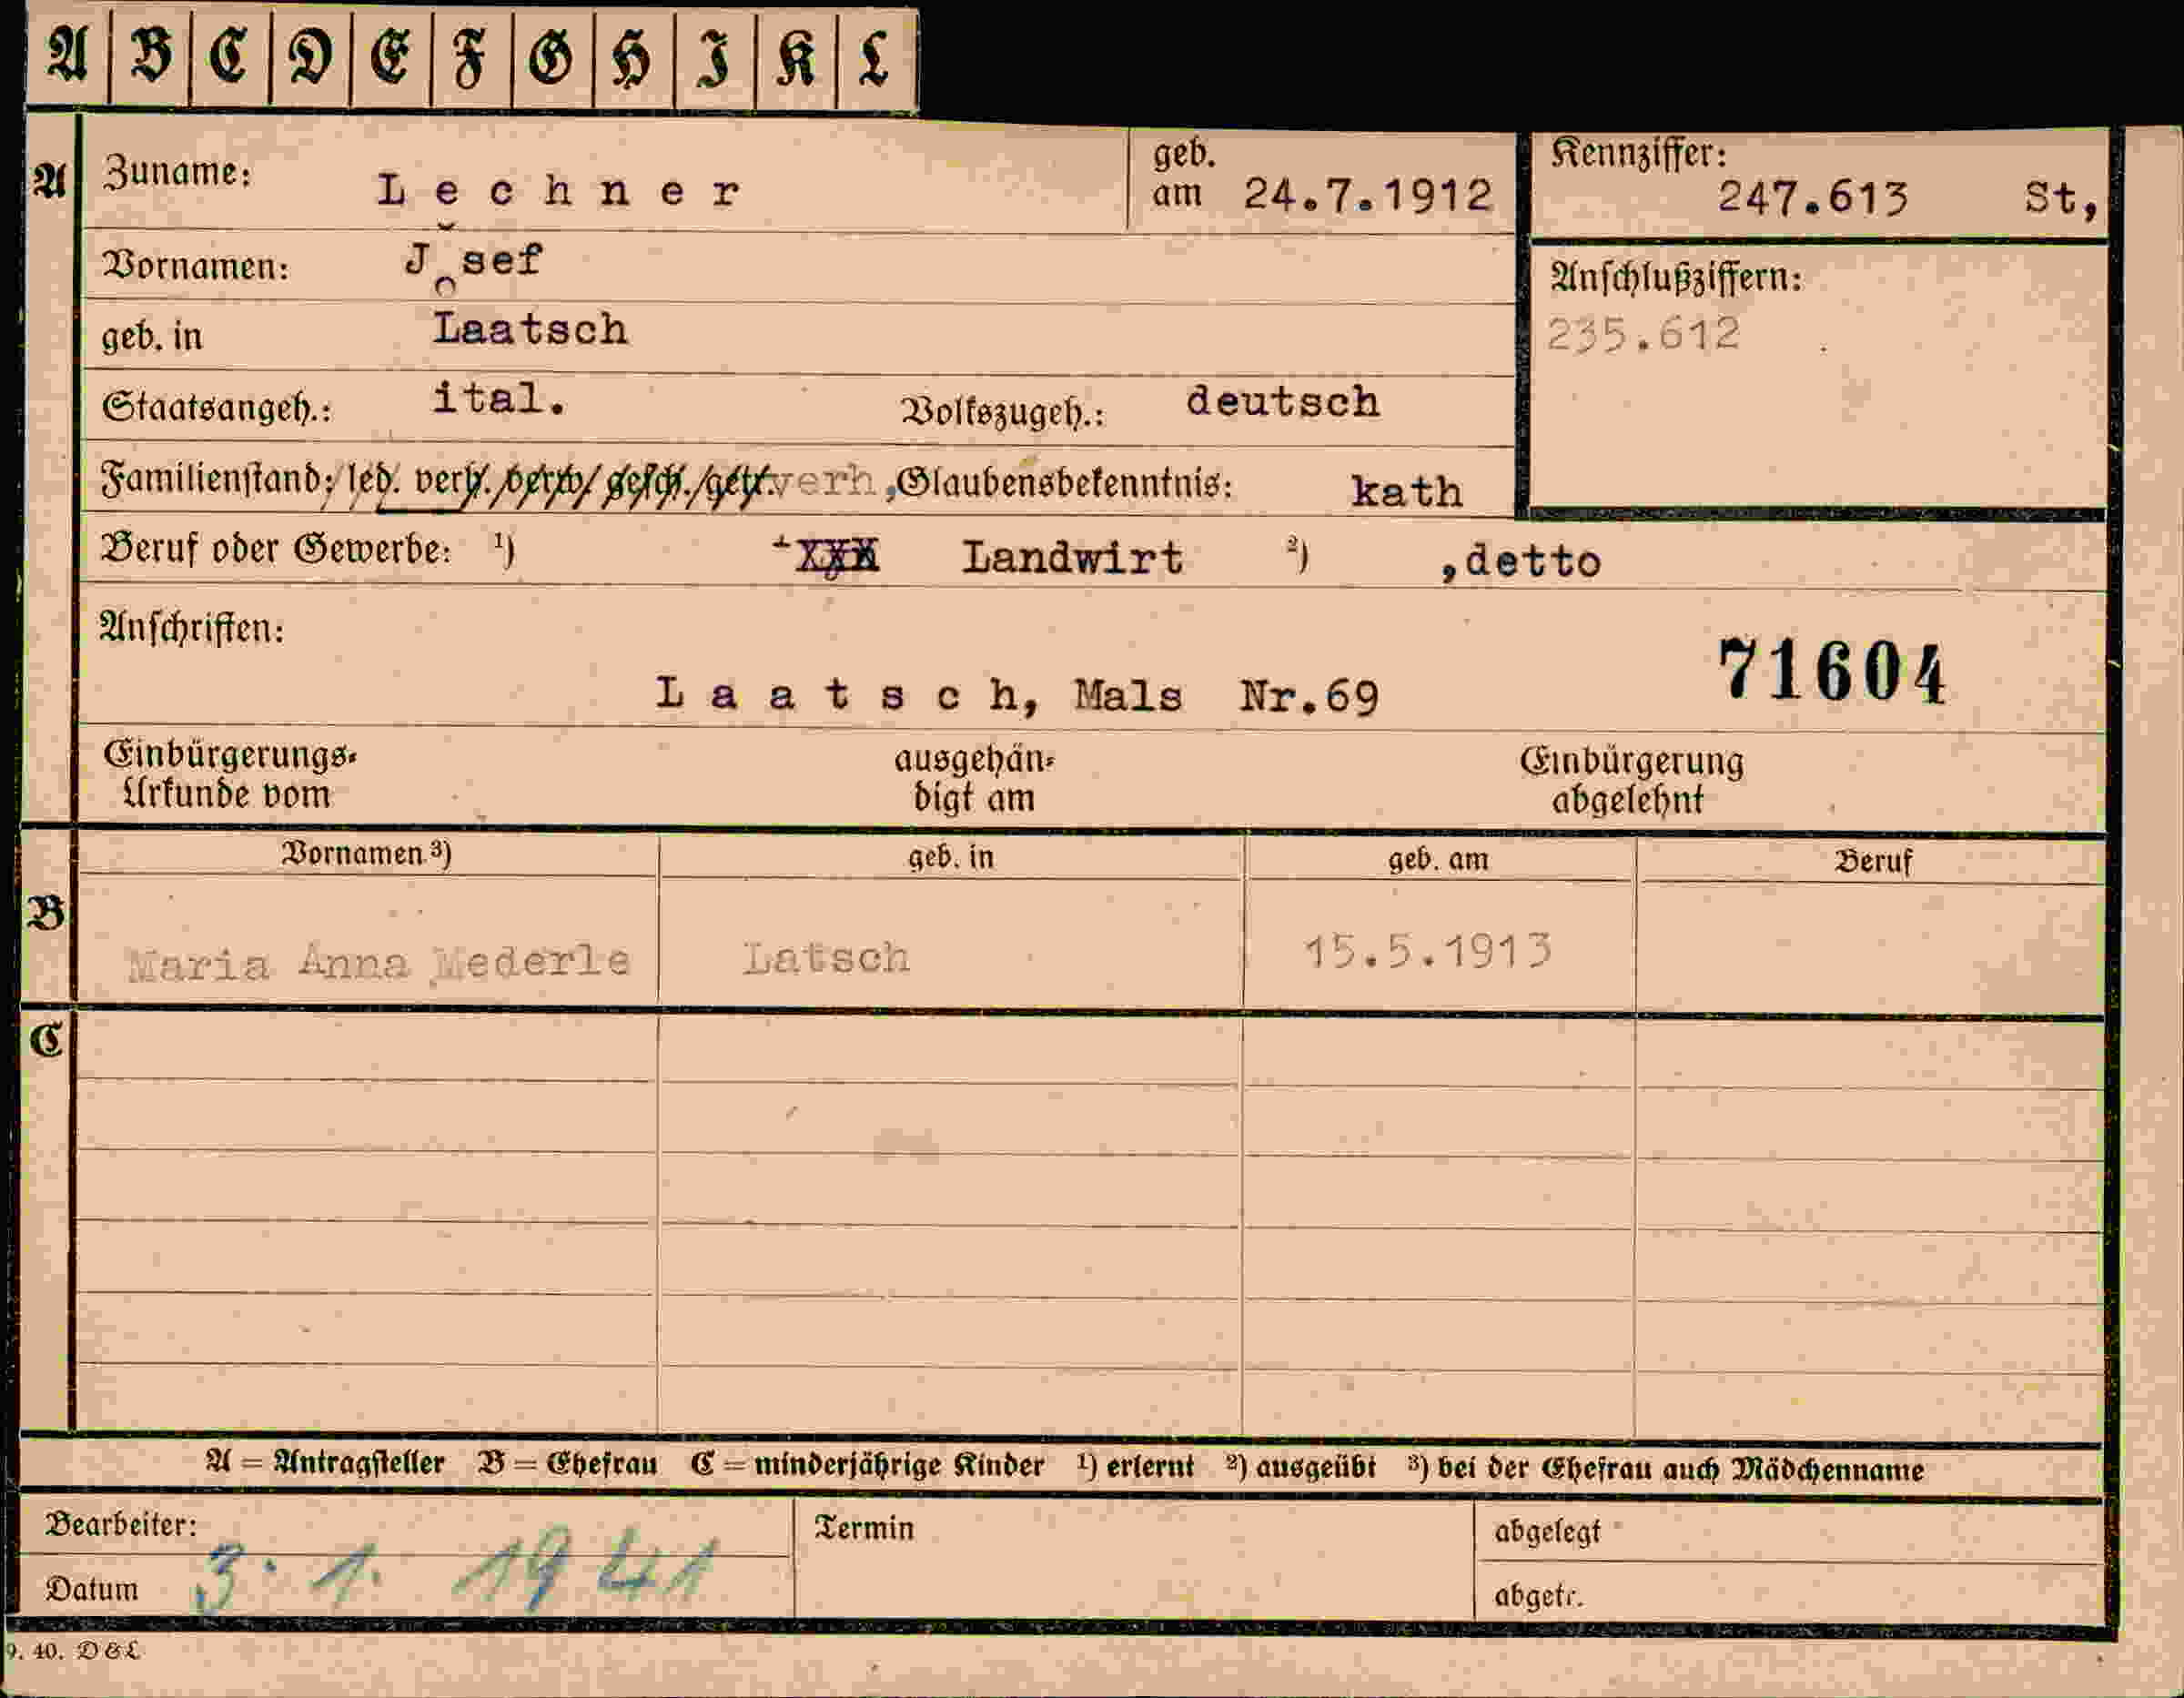 A B C D E F G H I K L
A Zuname: Lechner geb. am 24.7.1912 Kennziffer: 247.613 St,
Vornamen: Josef Anschlußziffern:
geb. in Laatsch 235.612
Staatsangeh.: ital. Volkszugeh.: deutsch
Familienstand: led. verh. verw. gesch. getr. verh, Glaubensbekenntnis: kath
Beruf oder Gewerbe: ¹) XXX Landwirt ²) ,detto
Anschriften:
71604
Laatsch, Mals Nr.69
Einbürgerungs-Urkunde vom ausgehändigt am Einbürgerung abgelehnt
B Vornamen ³) geb. in geb. am Beruf
Maria Anna Mederle Latsch 15.5.1913
C
A = Antragsteller B = Ehefrau C = minderjährige Kinder ¹) erlernt ²) ausgeübt ³) bei der Ehefrau auch Mädchenname
Bearbeiter: Termin abgelegt
Datum 3. 1. 1941 abgetr.
9. 40. D&L